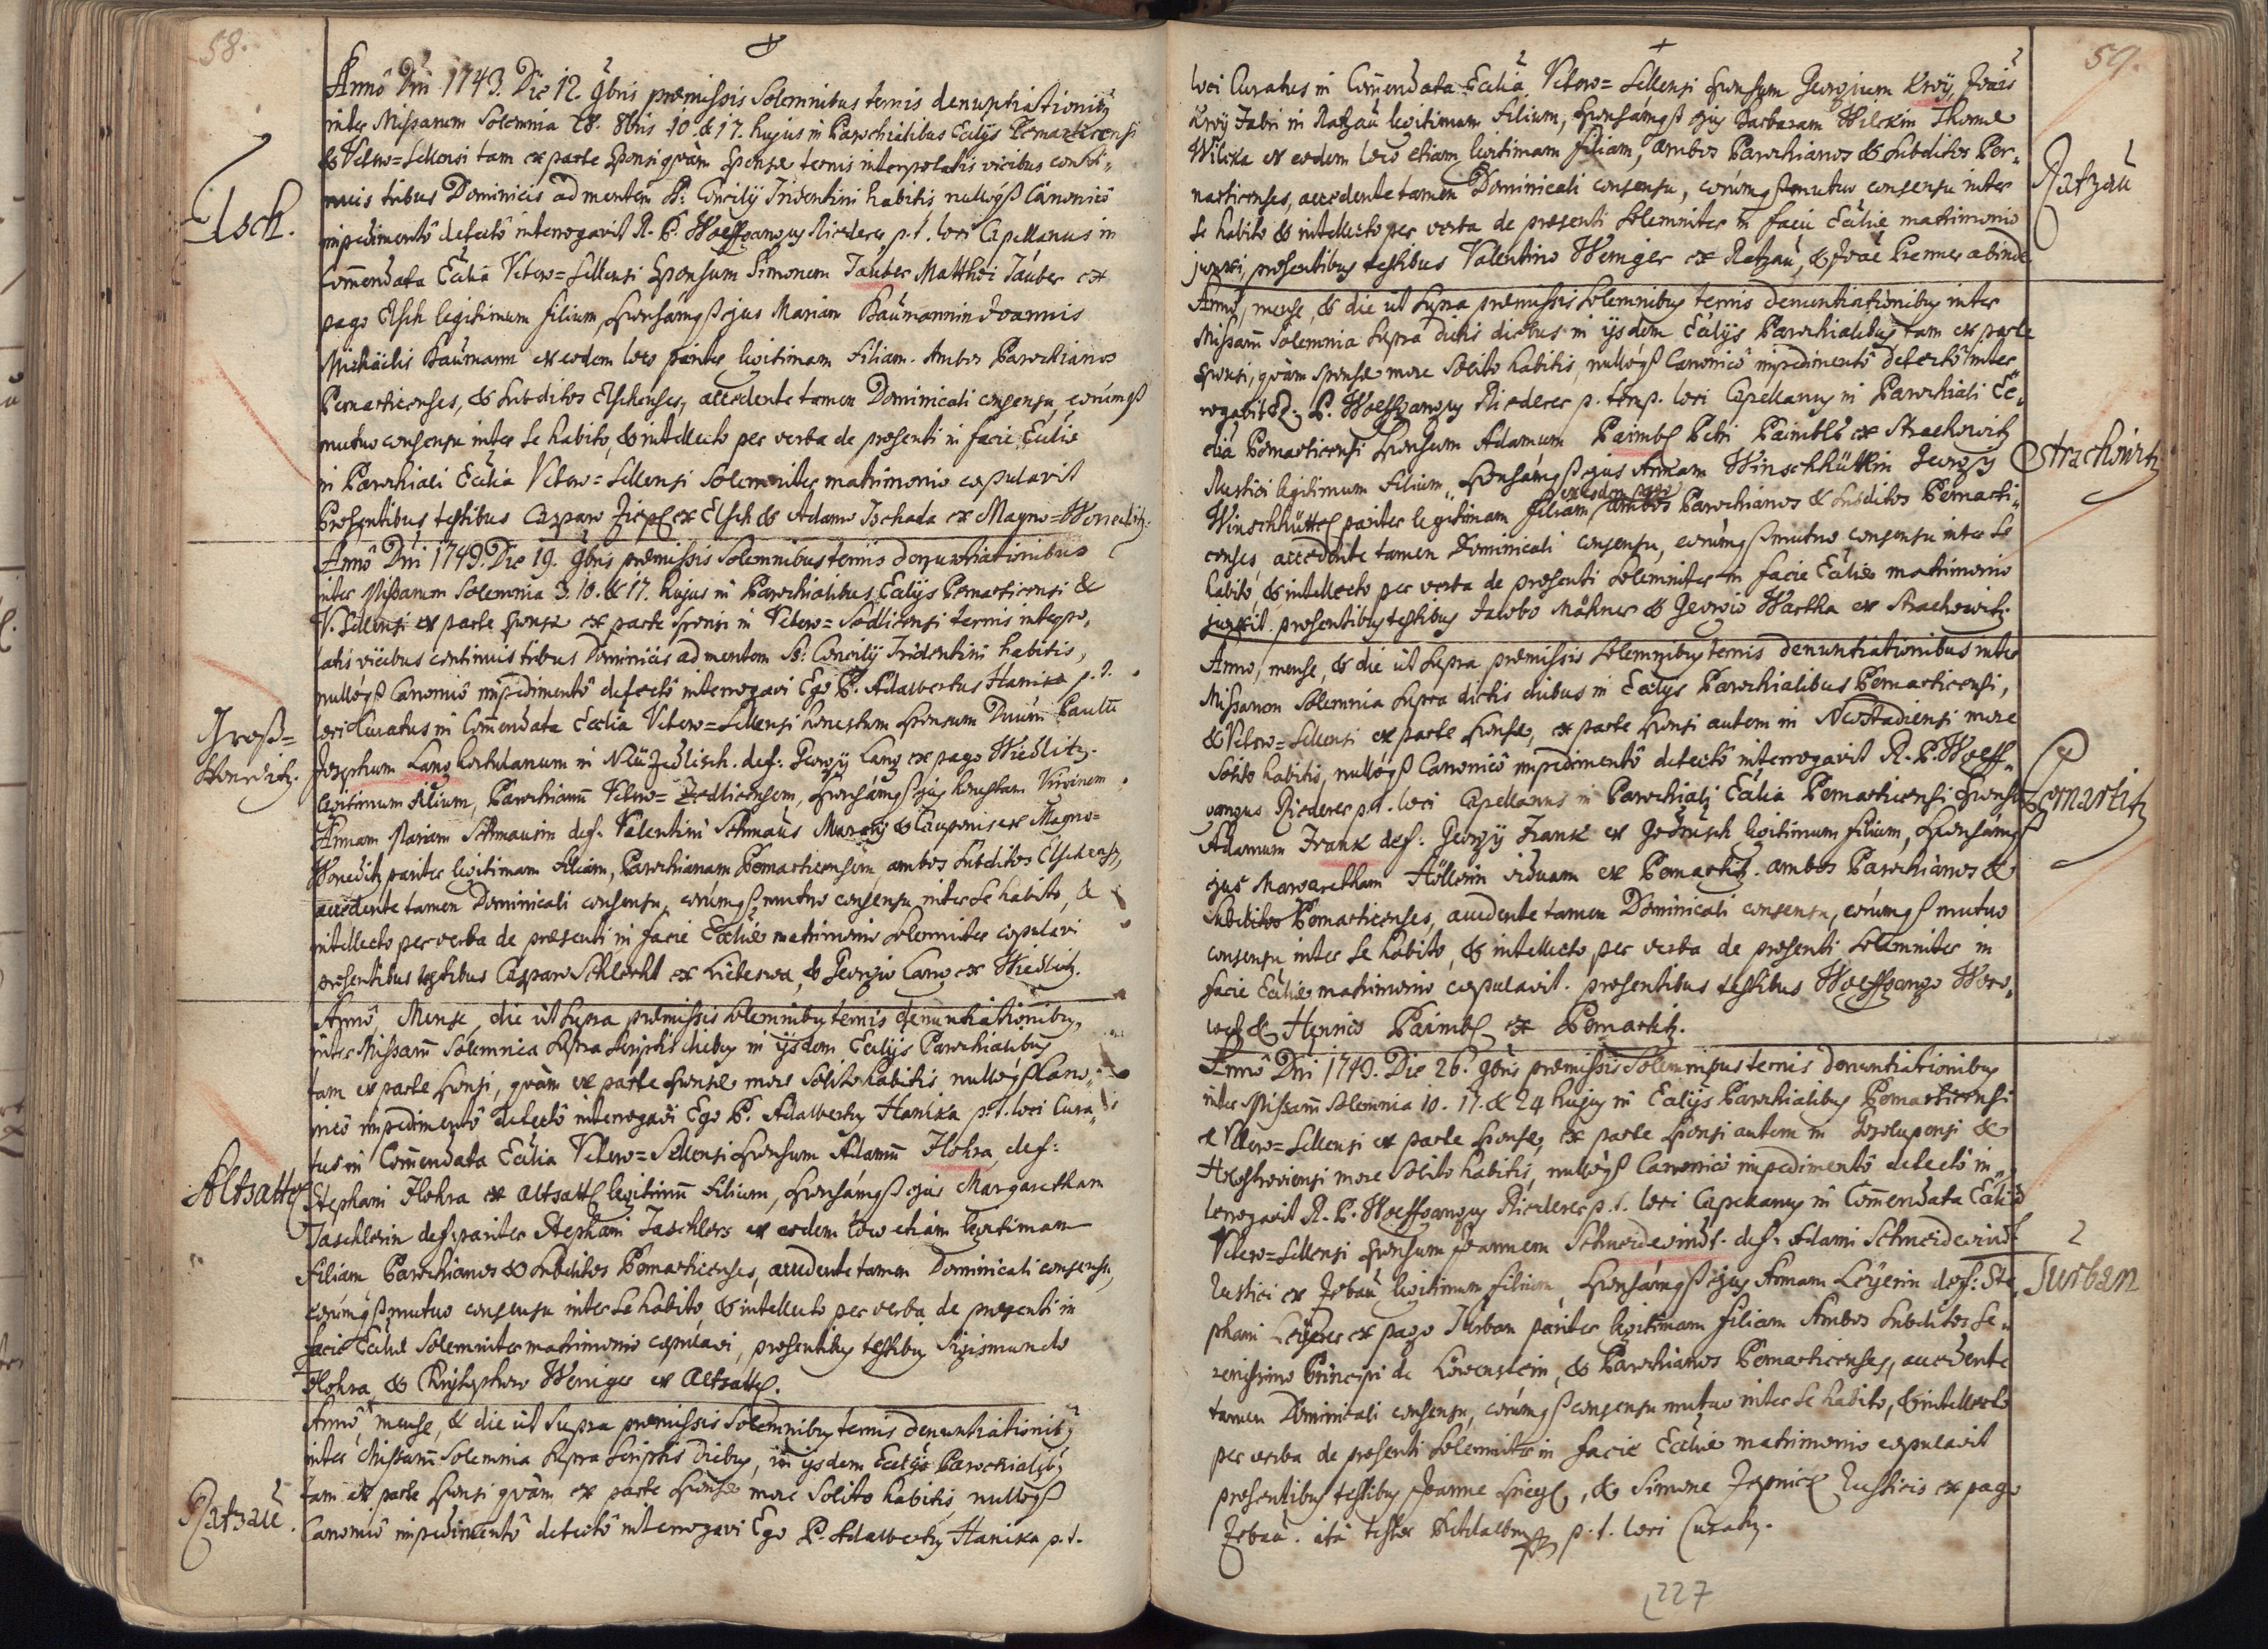 58.
Annô Dñi 1743. Die 12. 9bris præmissis Solemnibus ternis denuntiationibȝ
inter Missarum Solemnia 28. 8bris 10. & 17. hujus in Parochialibus Eccliis Pernarticensi
& Vetero=Sellensi tam ex parte Sponsi quàm Sponsæ ternis interpolatis vicibus conti„
nuis tribus Dominicis ad mentem S: Concilij Tridentini habitis nullóqȝ Canonicô
impedimentô detectô interrogavit R. P. Wolffgangus Riederer p. t. loci Capellanus in
Com̄endata Ecclia Vetero=Sellensi Sponsum Simonem Tauber Matthæi Tauber ex
Elsch.
pago Elsch legitimum filium, Sponsámqȝ ejus Mariam Baümannin Joannis
Michäelis Baümann ex eodem loco pariter legitimam filiam. Ambos Parochianos
Pernarticenses, & Subditos Elschenses, accedente tamen Dominicali consensu, eorúmqȝ
mutuo consensu inter se habito, & intellecto per verba de præsenti in facie Eccliæ
in Parochiali Ecclia Vetero=Sellensi Solemniter matrimonio copulavit
Præsentibus testibus Casparo ex Elsch & Adamo Tschada ex Magno=Wonetitz.
Annô Dñi 1743. Die 19. 9bris præmissis Solemnibus ternis denuntiationibus
inter Missarum Solemnia 3. 10. & 17. hujus in Parochialibus Eccliis Pernarticensi &
V. Sellensi ex parte Sponsæ ex parte Sponsi in Vetero=Sedlicensi ternis interpo„
latis vicibus continuis tribus Dominicis ad mentem S: Concilij Tridentini habitis,
nullóqȝ Canonicô impedimentô detectô interrogavi Ego P. Adalbertus Hanika p. t.
loci Curatus in Com̄endata Ecclia Vetero=Sellensi honestum Sponsum Dnum
Groß=
Wonetitz.
Josephum Lang hortulanum in Neü Zedlisch. def: Georgij Lang ex pago Wiedlitz.
legitimum filium, Parochianū Vetero=Zedlicensem, Sponsámqȝ ejus honestam Virginem
Annam Mariam Schmausin def. Valentini Schmaus & Cauponis ex Magno=
Wonetitz pariter legitimam filiam, Parochianam Pernarticensem, ambos Subditos Elschenses,
accedente tamen Dominicali consensu, eorúmqȝ mutuo consensu inter se habito, &
intellecto per verba de præsenti in facie Eccliæ matrimonio Solemniter copulavi
præsentibus testibus Casparo Schlecht ex Liebeswa, & Georgio Lang ex Wiedlitz.
Annô, Mense, die ut Supra præmissis Solemnibȝ ternis denuntiationibȝ,
inter Missarū Solemnia Supra Scriptis diebȝ in ijsdem Eccliis Parochialibȝ
tam ex parte Sponsi, quàm ex parte Sponsæ more Solito habitis nullóqȝ Cano„
nicô impedimentô detectô interrogavi Ego P. Adalbertȝ Hanika p. t. loci Cura„
tus in Com̄endata Ecclia Vetero=Sellensi Sponsum Adamū Flohra def:
Altsattel
Stephani Flohra ex Altsattel legitimū filium, Sponsámqȝ ejus Margaretham
Taschlerin def: pariter Stephani Taschlers ex eodem loco etiam legitimam
filiam Parochianos & Subditos Pernarticenses, accedente tamen Dominicali consensu,
eorúmqȝ mutuo consensu inter se habito, & intellecto per verba de præsenti in
facie Eccliæ Solemniter matrimonio copulavi, præsentibȝ testibȝ Sigismundo
Flohra, & Christophoro Weniger ex Altsattel.
Annô, mense, & die ut Supra præmissis Solemnibȝ ternis denuntiationibȝ
inter Missarū Solemnia Supra Scriptis diebȝ, in ijsdem Eccliis Parochialibȝ
tam ex parte Sponsi quàm ex parte Sponsæ more Solito habitis nullóqȝ
Ratzau.
Canonicô impedimentô detectô interrogavi Ego P. Adalbertȝ Hanika p. t.
59.
loci Curatus in Com̄endata Ecclia Vetero=Sellensi Sponsum Georgium Kroÿ, Joañis
Kroÿ Fabri in Ratzaü legitimum filium, Sponsámqȝ ejus Barbaram Wilckin Thomæ
Wilcka ex eodem loco etiam legitimam filiam, ambos Parochianos & Subditos Per„
Ratzaü
narticenses, accedente tamen Dominicali consensu, eorúmqȝ mutuo consensu inter
se habito & intellecto per verba de præsenti Solemniter in facie Eccliæ matrimonio
junxi, præsentibȝ testibȝ Valentino Weniger ex Ratzaü, & Joañe Prenner abinde
Annô, mense, & die ut Supra præmissis Solemnibȝ ternis denuntiationibȝ inter
Missarū Solemnia Supra dictis diebus in ijsdem Eccliis Parochialibȝ tam ex parte
Sponsi, quàm Sponsæ more Solito habitis, nullóqȝ Canonicô impedimentô detectô inter„
rogavit R. P. Wolffgangȝ Riederer p. temp. loci Capellanȝ in Parochiali Ec„
clia Pernarticensi Sponsum Adamum Paimbl Petri Paimbls ex Strachowitz
Strachowitz
Rustici legitimum filium, Sponsámqȝ ejus Annam Winschhüttlin Georgij
ex eodem pago
Winschhüttel pariter legitimam filiam, ambos Parochianos & Subditos Pernarti„
censes, accedente tamen Dominicali consensu, eorúmqȝ mutuo consensu inter se
habito, & intellecto per verba de præsenti Solemniter in facie Eccliæ matrimonio
junxit. præsentibȝ testibȝ Jacobo Mähner & Georgio Wartha ex Strachowitz.
Anno, mense, & die ut Supra præmissis Solemnibȝ ternis denuntiationibus inter
Missarum Solemnia Supra dictis diebus in Eccliis Parochialibus Pernarticensi,
& Vetero=Sellensi ex parte Sponsæ, ex parte Sponsi autem in Neostadiensi more
Solito habitis, nullóqȝ Canonicô impedimentô detectô interrogavit R. P. Wolff„
gangus Riederer p. t. loci Capellanus in Parochiali Ecclia Pernarticensi Sponsum
Pernartitz
Adamum Frank def: Georgij Frank ex Godrusch legitimum filium, Sponsámqȝ
ejus Margaretham Höllerin viduam ex Pernartitz. ambos Parochianos &
Subditos Pernarticenses, accedente tamen Dominicali consensu, eorúmqȝ mutuo
consensu inter se habito, & intellecto per verba de præsenti Solemniter in
facie Eccliæ matrimonio copulavit. præsentibus testibus Wolffgango Woro„
weck & Henrico Paimbl ex Pernartitz.
Annô Dñi 1743. Die 26. 9bris præmissis Solemnibus ternis denuntiationibȝ
inter Missarū Solemnia 10. 17. & 24 hujȝ in Eccliis Parochialibȝ Pernarticensi
& Vetero=Sellensi ex parte Sponsæ, ex parte Sponsi autem in &
more Solito habitis, nullóqȝ Canonicô impedimentô detectô in„
terrogavit R. P. Wolffgangȝ Riederer p. t. loci Capellanȝ in Com̄endata Ecclia
Vetero=Sellensi Sponsum Joannem Schneidewindt. def: Adami Schneidewindt
Turban
Rustici ex Zebaü legitimum filium, Sponsámqȝ ejus Annam Leÿerin def: Ste„
phani Leÿerer ex pago Turban pariter legitimam filiam Ambos Subditos Se„
renissimo Principi de Löwenstein, & Parochianos Pernarticenses, accedente
tamen Dominicali consensu, eorúmqȝ consensu mutuo inter se habito, & intellecto
per verba de præsenti Solemniter in facie Eccliæ matrimonio copulavit
præsentibȝ testibȝ Joanne , & Simone Rusticis ex pago
Zebaü. ità testor P. Adalbertȝ p. t. loci Curatȝ.
227